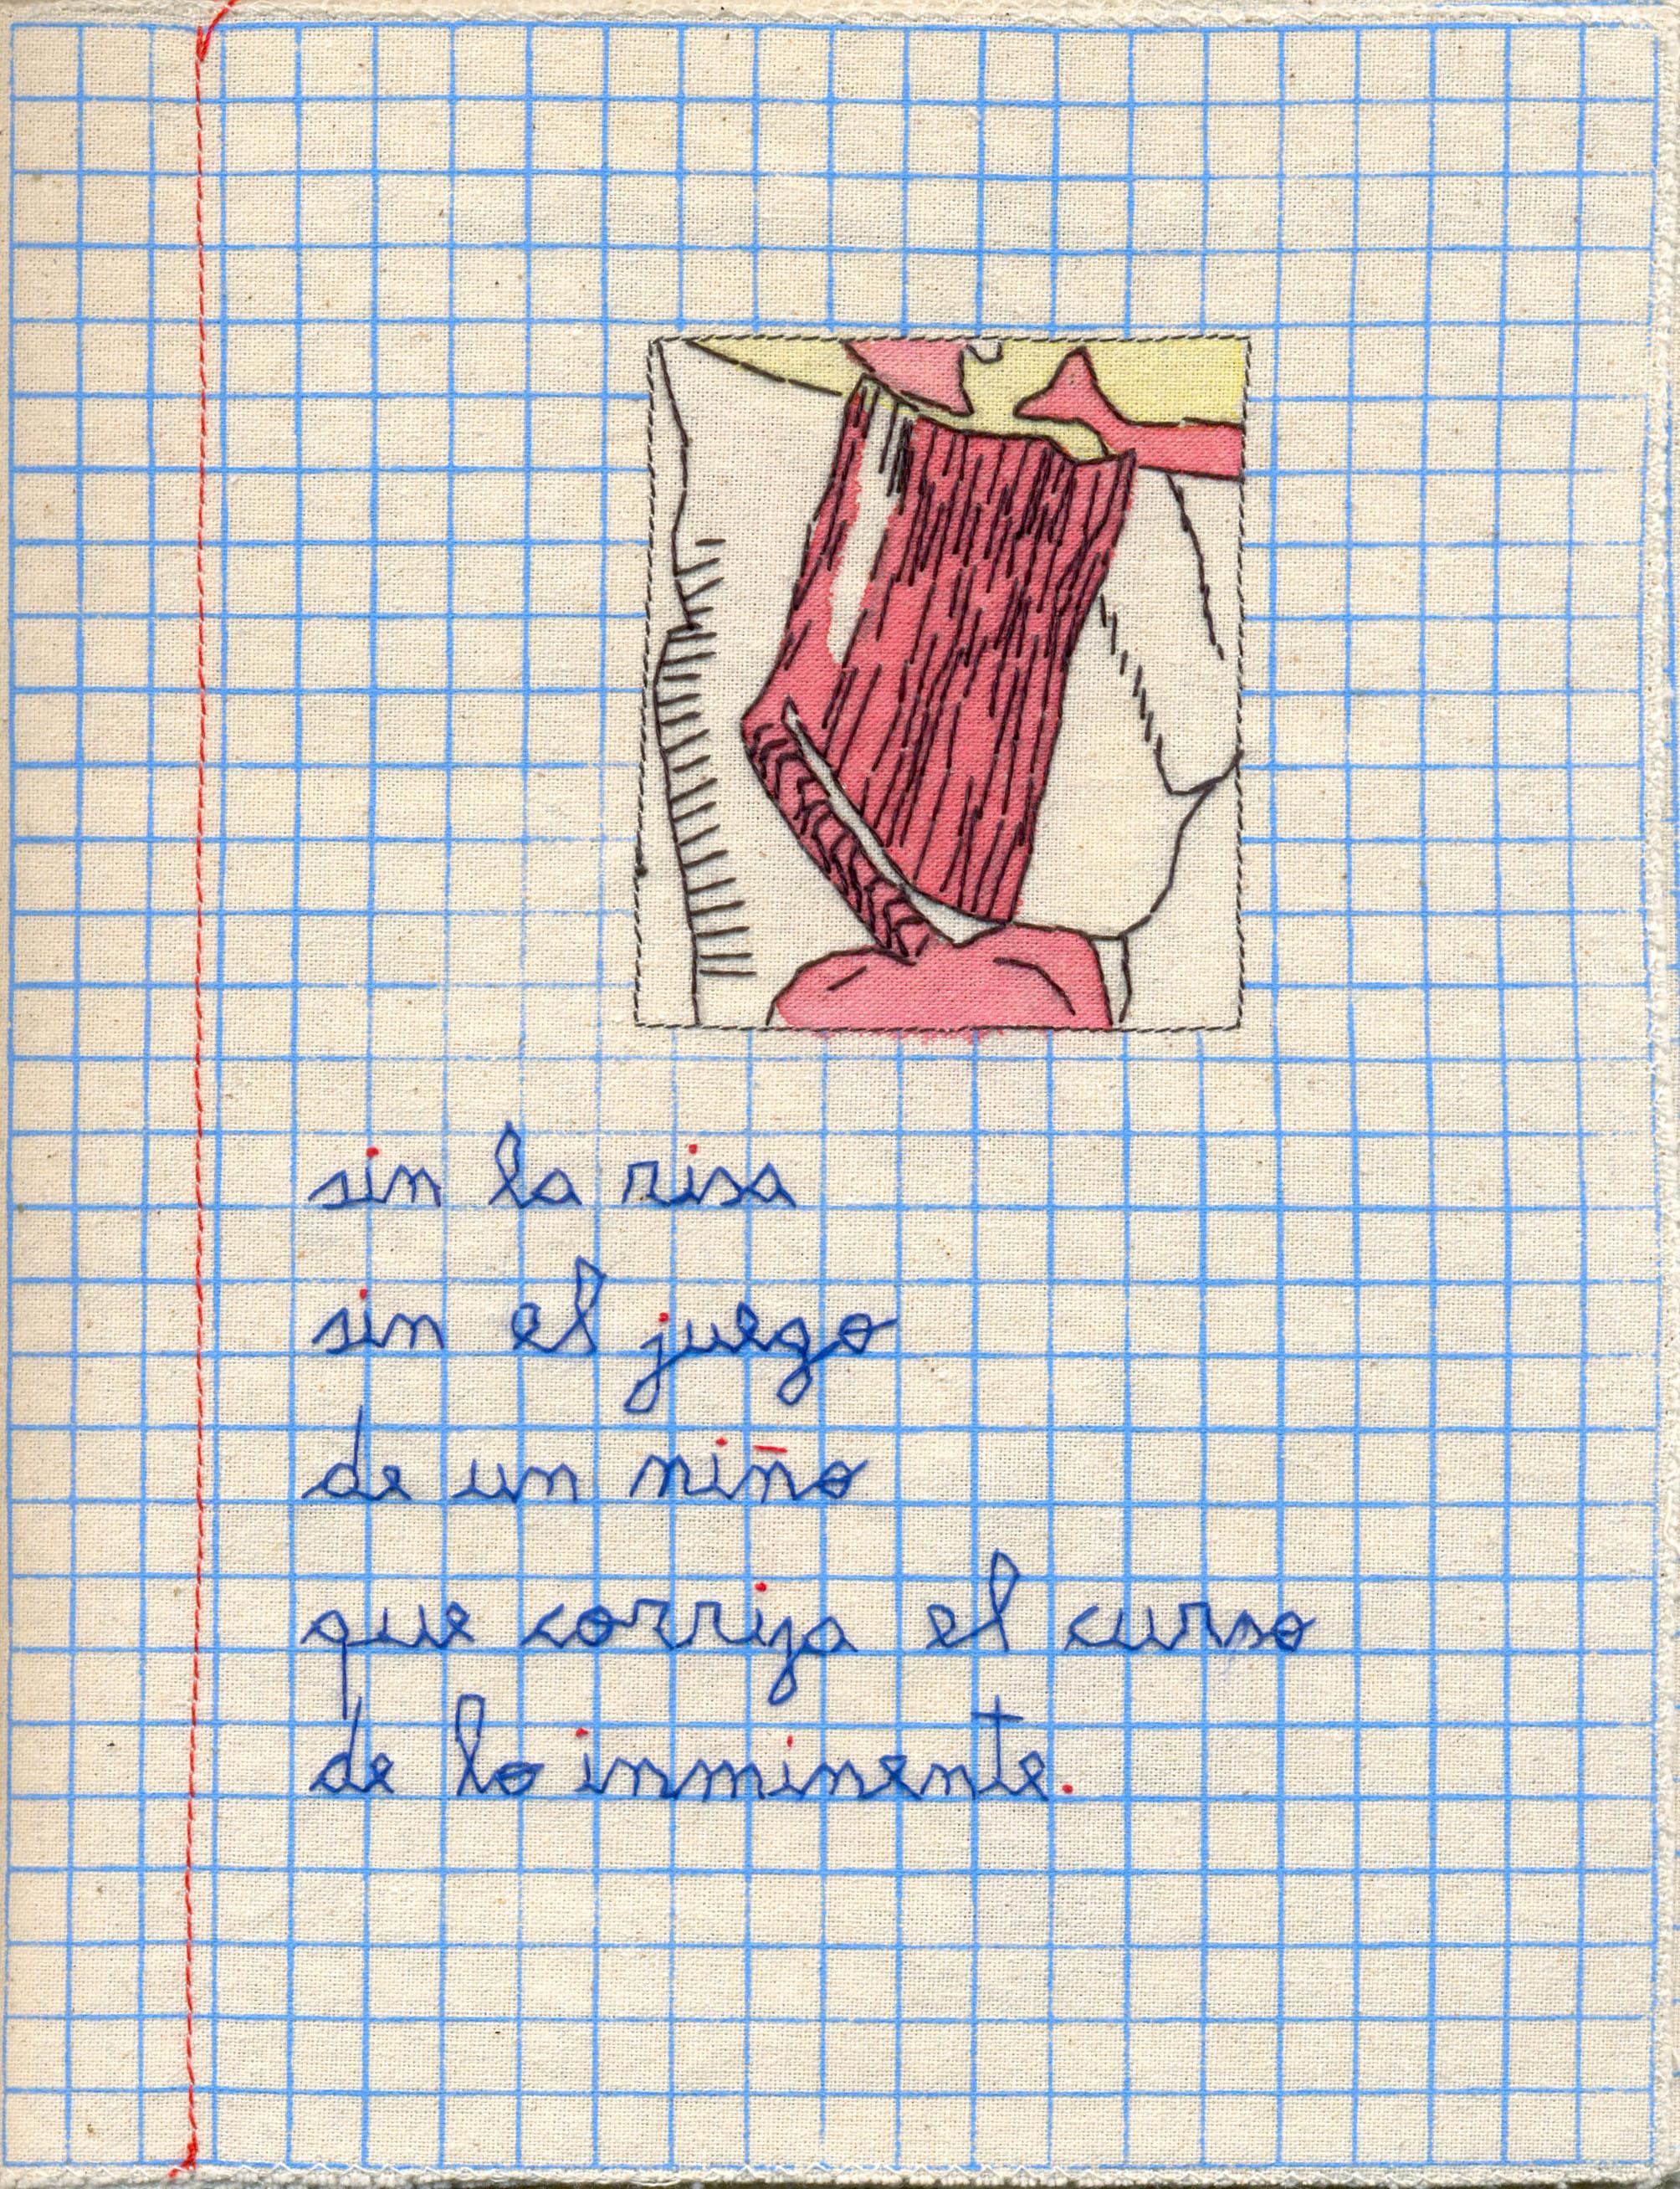 sin la risa
sin el juego
de un niño
que corrija el curso
de lo inminente.